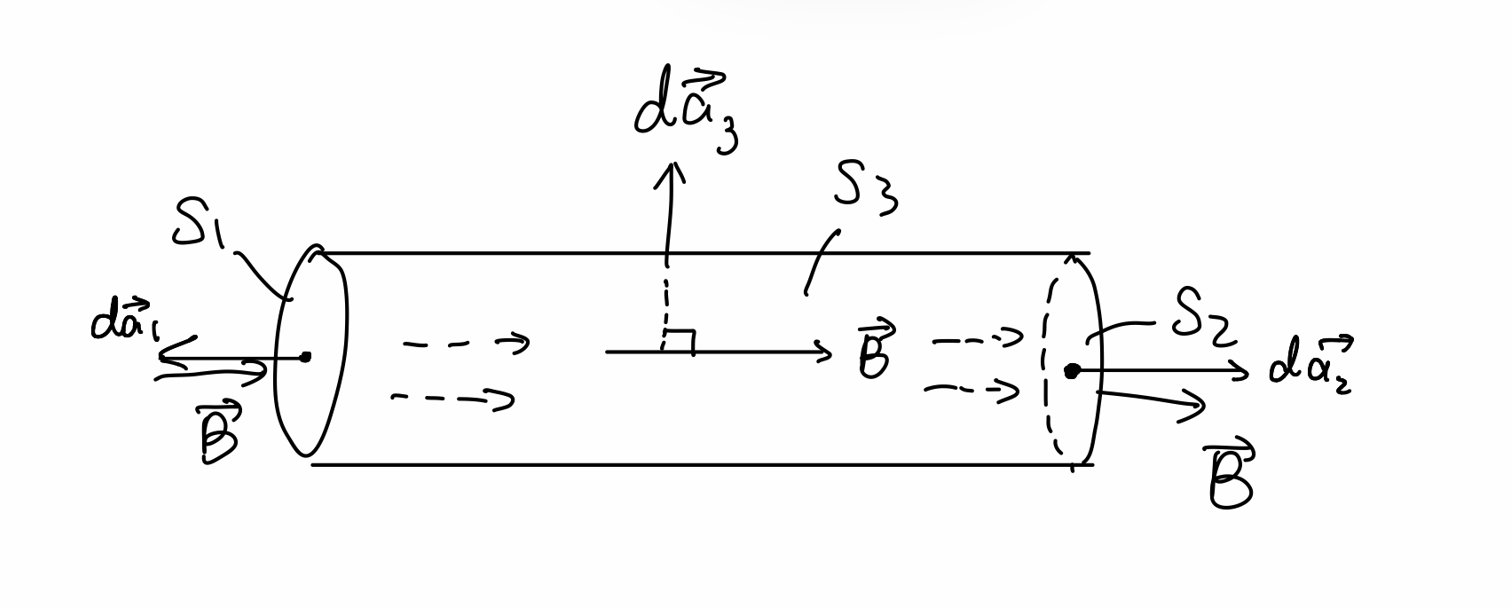 da⃗₃
S₃
S₁
da⃗₁
B⃗
S₂
da⃗₂
B⃗
B⃗